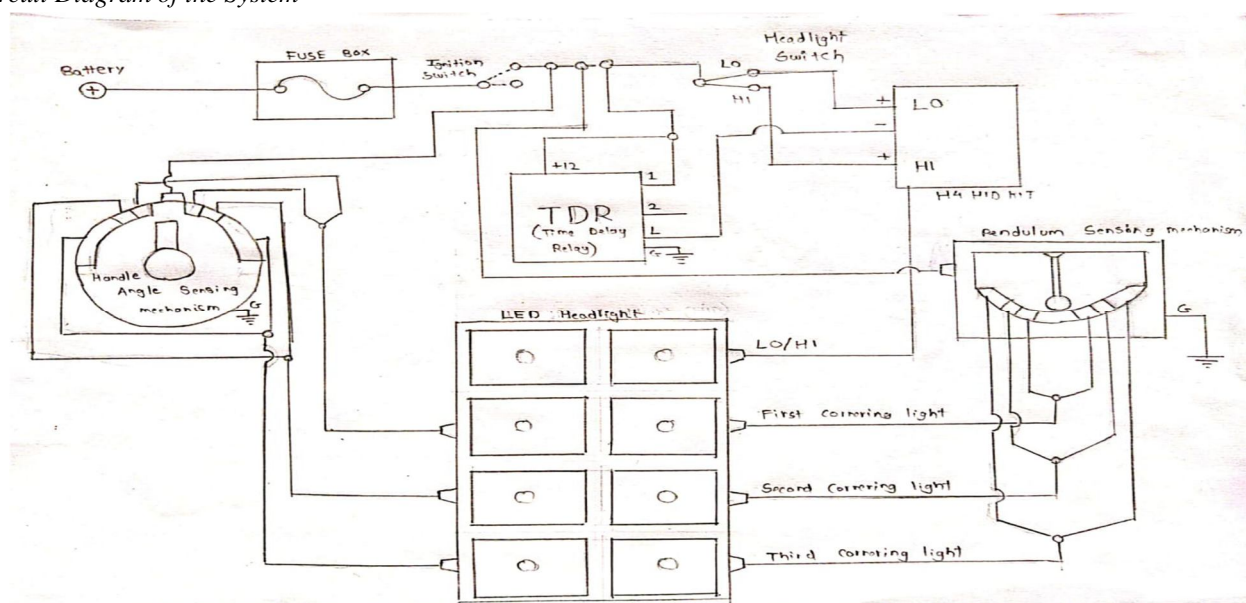 Circuit Diagram of the System
Battery
+
FUSE BOX
Ignition
Switch
Headlight
Switch
LO
HI
+ LO
-
+ HI
H4 HID KIT
+12
1
2
L
G
TDR
(Time Delay
Relay)
Handle
Angle Sensing
mechanism
G
Pendulum Sensing mechanism
G
LED Headlight
LO/HI
First cornering light
Second cornering light
Third cornering light